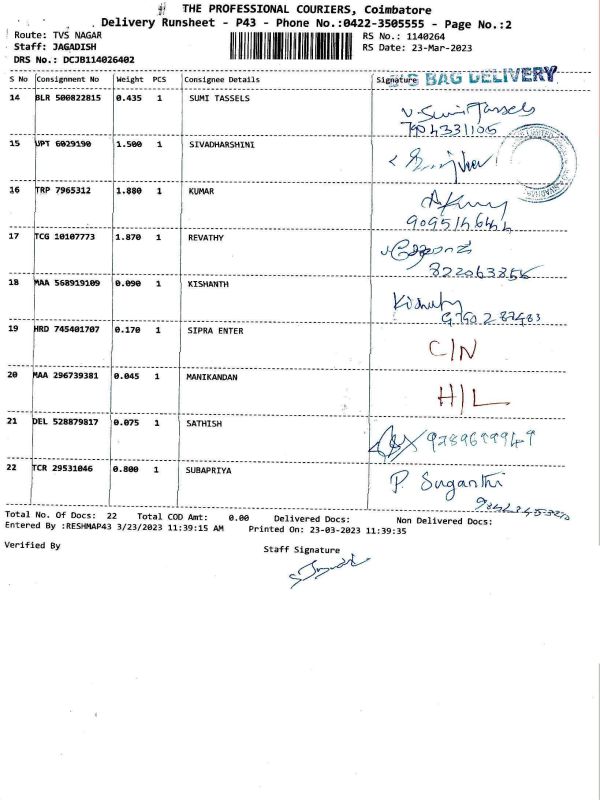 THE PROFESSIONAL COURIERS, Coimbatore
Delivery Runsheet - P43 - Phone No.:0422-3505555 - Page No.:2
Route: TVS NAGAR RS No.: 1140264
Staff: JAGADISH RS Date: 23-Mar-2023
DRS No.: DCJB114026402
BAG DELIVERY
S No Consignment No Weight PCS Consignee Details Signature
14 BLR 500822815 0.435 1 SUMI TASSELS V. Sumi Tassels
7904331105
15 UPT 6029190 1.500 1 SIVADHARSHINI
16 TRP 7965312 1.880 1 KUMAR
17 TCG 10107773 1.870 1 REVATHY
18 MAA 568919109 0.090 1 KISHANTH
19 HRD 745401707 0.170 1 SIPRA ENTER C/N
20 MAA 296739381 0.045 1 MANIKANDAN H/L
21 DEL 528879817 0.075 1 SATHISH
22 TCR 29531046 0.800 1 SUBAPRIYA P. Suganthi
Total No. Of Docs: 22 Total COD Amt: 0.00 Delivered Docs: Non Delivered Docs:
Entered By :RESHMAP43 3/23/2023 11:39:15 AM Printed On: 23-03-2023 11:39:35
Verified By Staff Signature